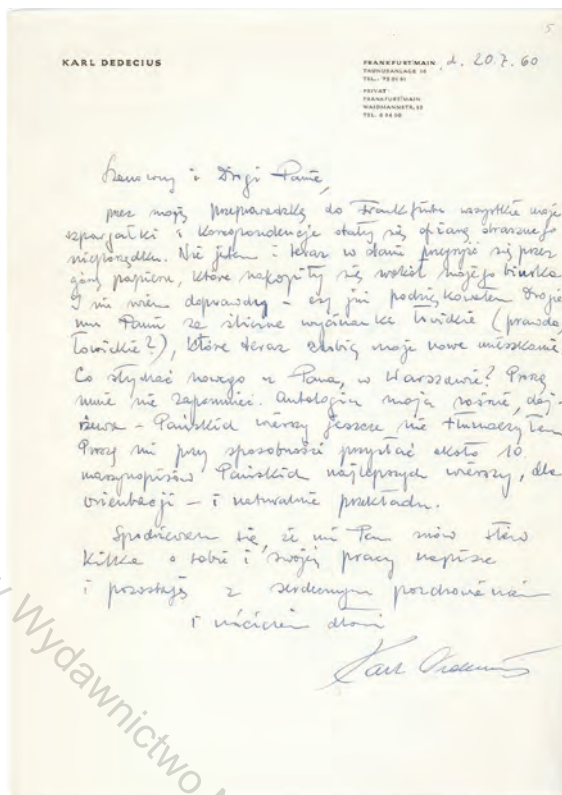 5
KARL DEDECIUS
FRANKFURT/MAIN, d. 20.7.60
TAUNUSANLAGE
TEL.:
PRIVAT:
FRANKFURT/MAIN
TEL.
Szanowny i Drogi Panie,
przez moją przeprowadzkę do Frankfurtu wszystkie moje
szpargałki i korespondencje stały się ofiarą strasznego
nieporządku. Nie jestem i teraz w stanie przejrzeć się przez
górę papieru, które nakopiły się wokół mojego biurka
I nie wiem doprawdy – czy już podziękowałem Drogie
mu Panu za śliczne wycinanki łowickie (prawda,
łowickie?), które teraz zdobią moje nowe mieszkanie
Co słychać nowego u Pana, w Warszawie? Proszę
mnie nie zapomnieć. Antologia moja rośnie, doj-
rzewa – Pańskich wierszy jeszcze nie tłumaczyłem
Proszę mi przy sposobności przysłać około 10
maszynopisów Pańskich najlepszych wierszy, dla
orientacji – i naturalnie przekładu.
Spodziewam się, że mi Pan znów słów
kilka o sobie i swojej pracy napisze
i pozostaję z serdecznym pozdrowieniem
i uściskiem dłoni
Karl Dedecius
Wydawnictwo